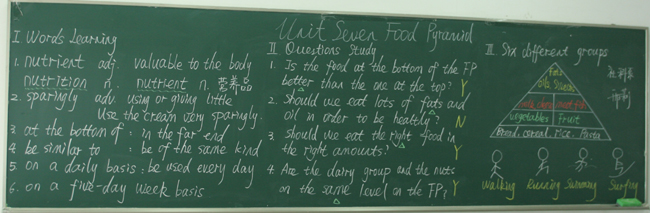 Unit Seven Food Pyramid
I Words Learning
1. nutrient adj. valuable to the body
nutrition n. nutrient n. 营养品
2. sparingly adv. using or giving little
Use the cream very sparingly.
3. at the bottom of : in the far end
4. be similar to : be of the same kind
5. on a daily basis : be used every day
6. on a five-day week basis
II Questions Study
1. Is the food at the bottom of the FP
better than the one at the top? Y
2. Should we eat lots of fats and
oil in order to be healthy? N
3. should we eat the right food in
the right amounts? Y
4. Are the dairy group and the nuts
on the same level on the FP? Y
III Six different groups
Fats
oils Sweets
Vegetables Fruit
Bread, cereal, rice, Pasta
Walking Running Swimming Surfing